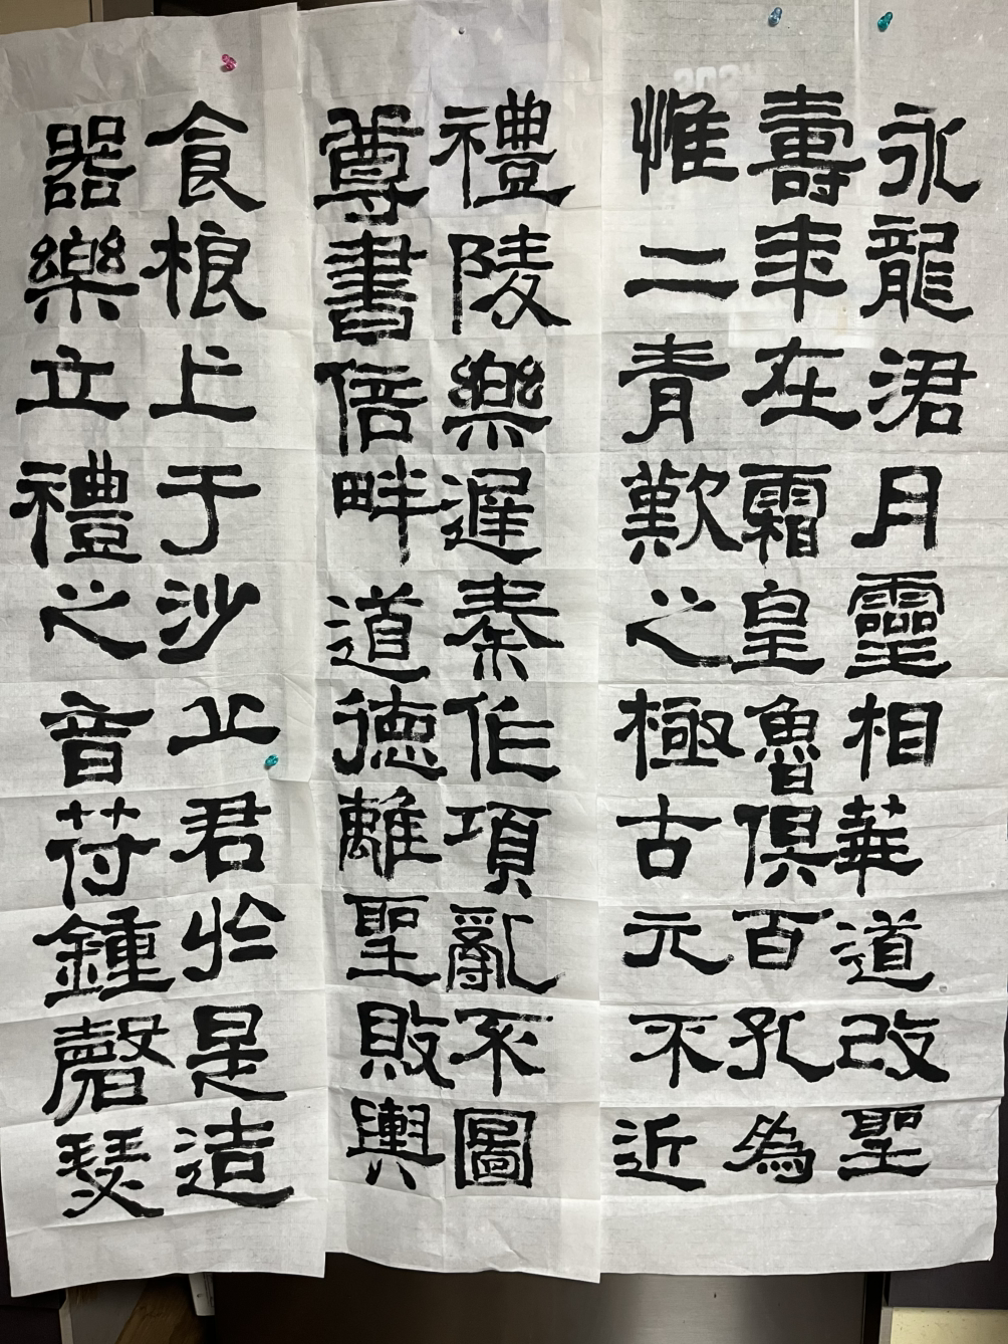 永龍涒月靈相華道改聖
壽年在霜皇魯俱百孔為
惟二青歎之極古元不近
禮陵樂遲秦作項亂不圖
尊書倍畔道德離聖敗輿
食粮亡于沙丘君於是造
器樂立禮之音苻鍾磬瑟